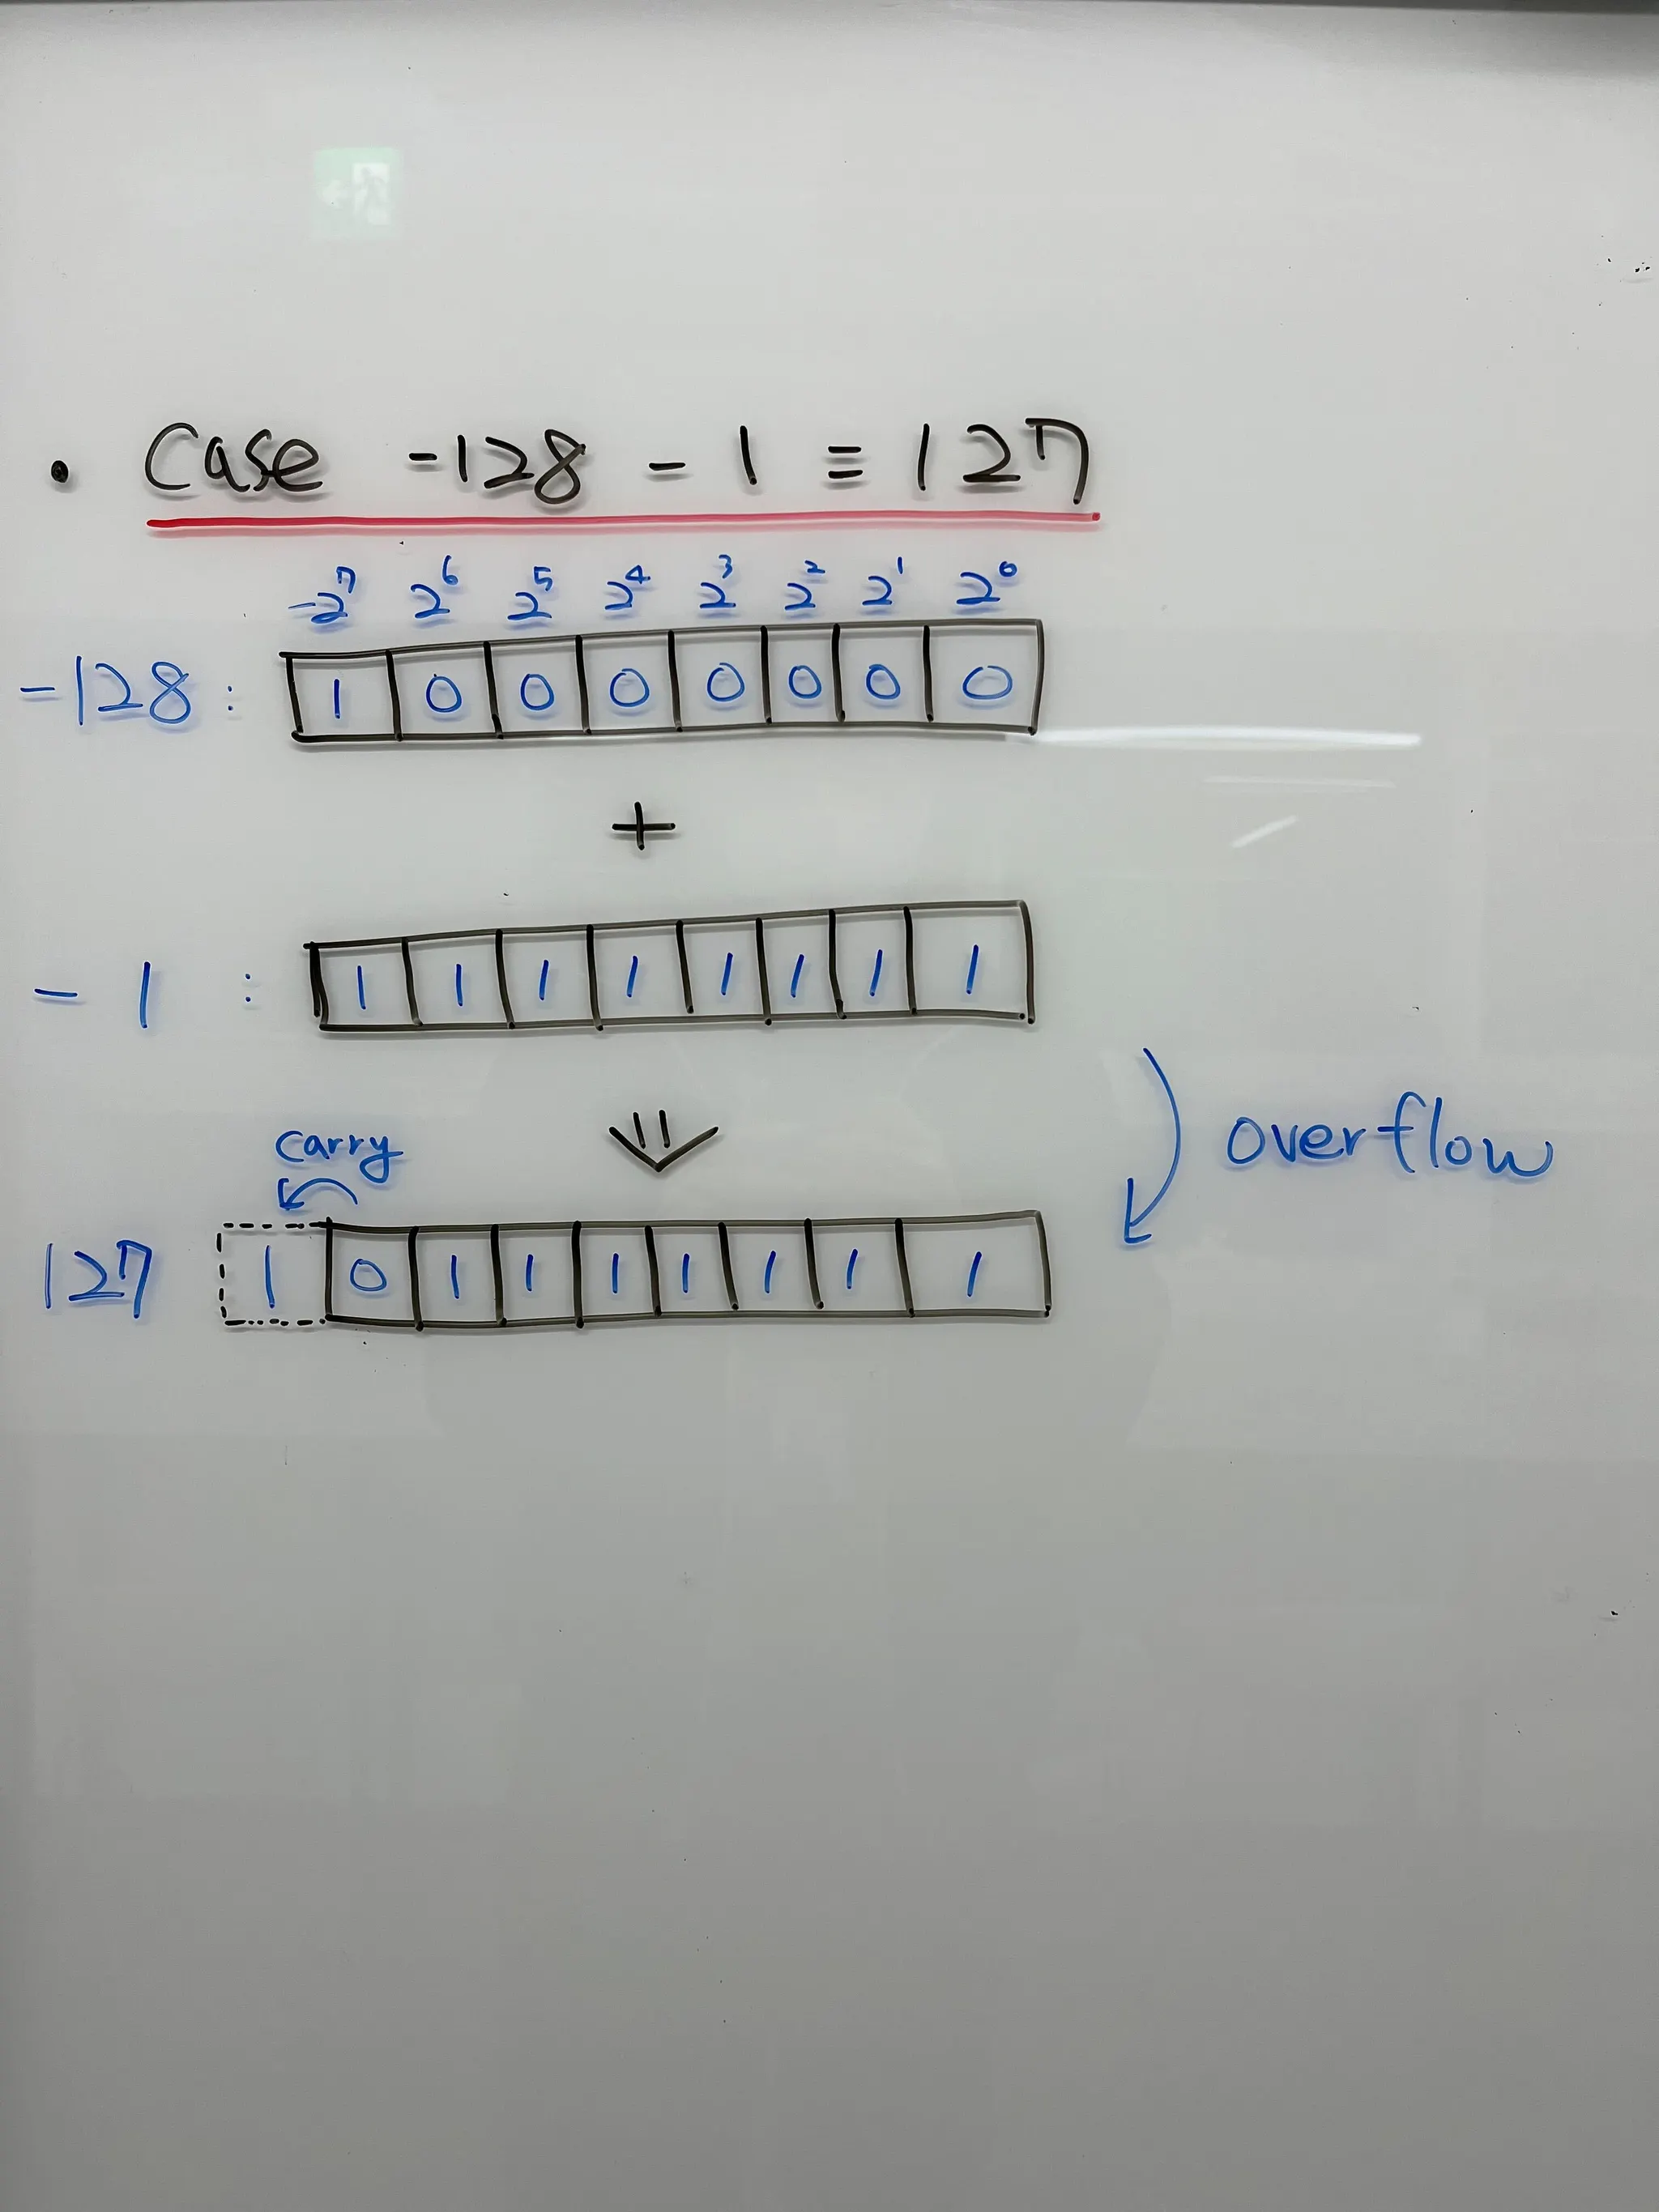 • Case -128 - 1 ≡ 127
-2⁷ 2⁶ 2⁵ 2⁴ 2³ 2² 2¹ 2⁰
-128 : 1 0 0 0 0 0 0 0
+
-1 : 1 1 1 1 1 1 1 1
overflow
carry
127 1 0 1 1 1 1 1 1 1